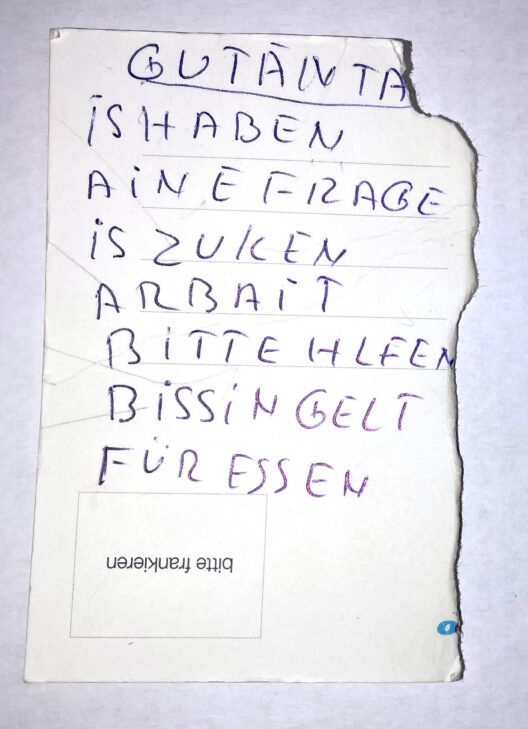 GUTÄN TA
iSHABEN
AiNE FRAGE
iS ZUKEN
ARBAiT
BiTTE HLFEN
BiSSiN GELT
FÜR ESSEN
bitte frankieren